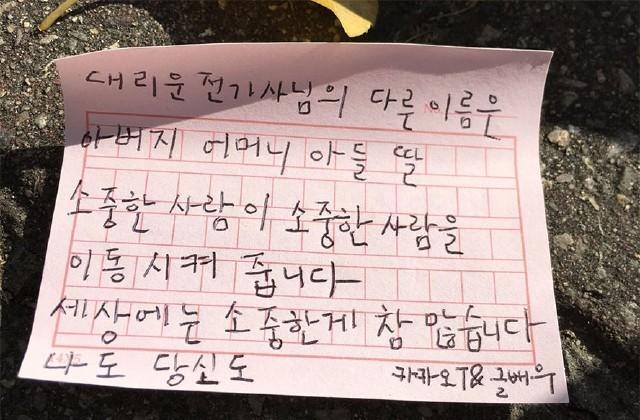 대리운전기사님의 다른 이름은
아버지 어머니 아들 딸
소중한 사람이 소중한 사람을
이동 시켜 줍니다
세상에는 소중한게 참 많습니다
나도 당신도
카카오T& 글배우